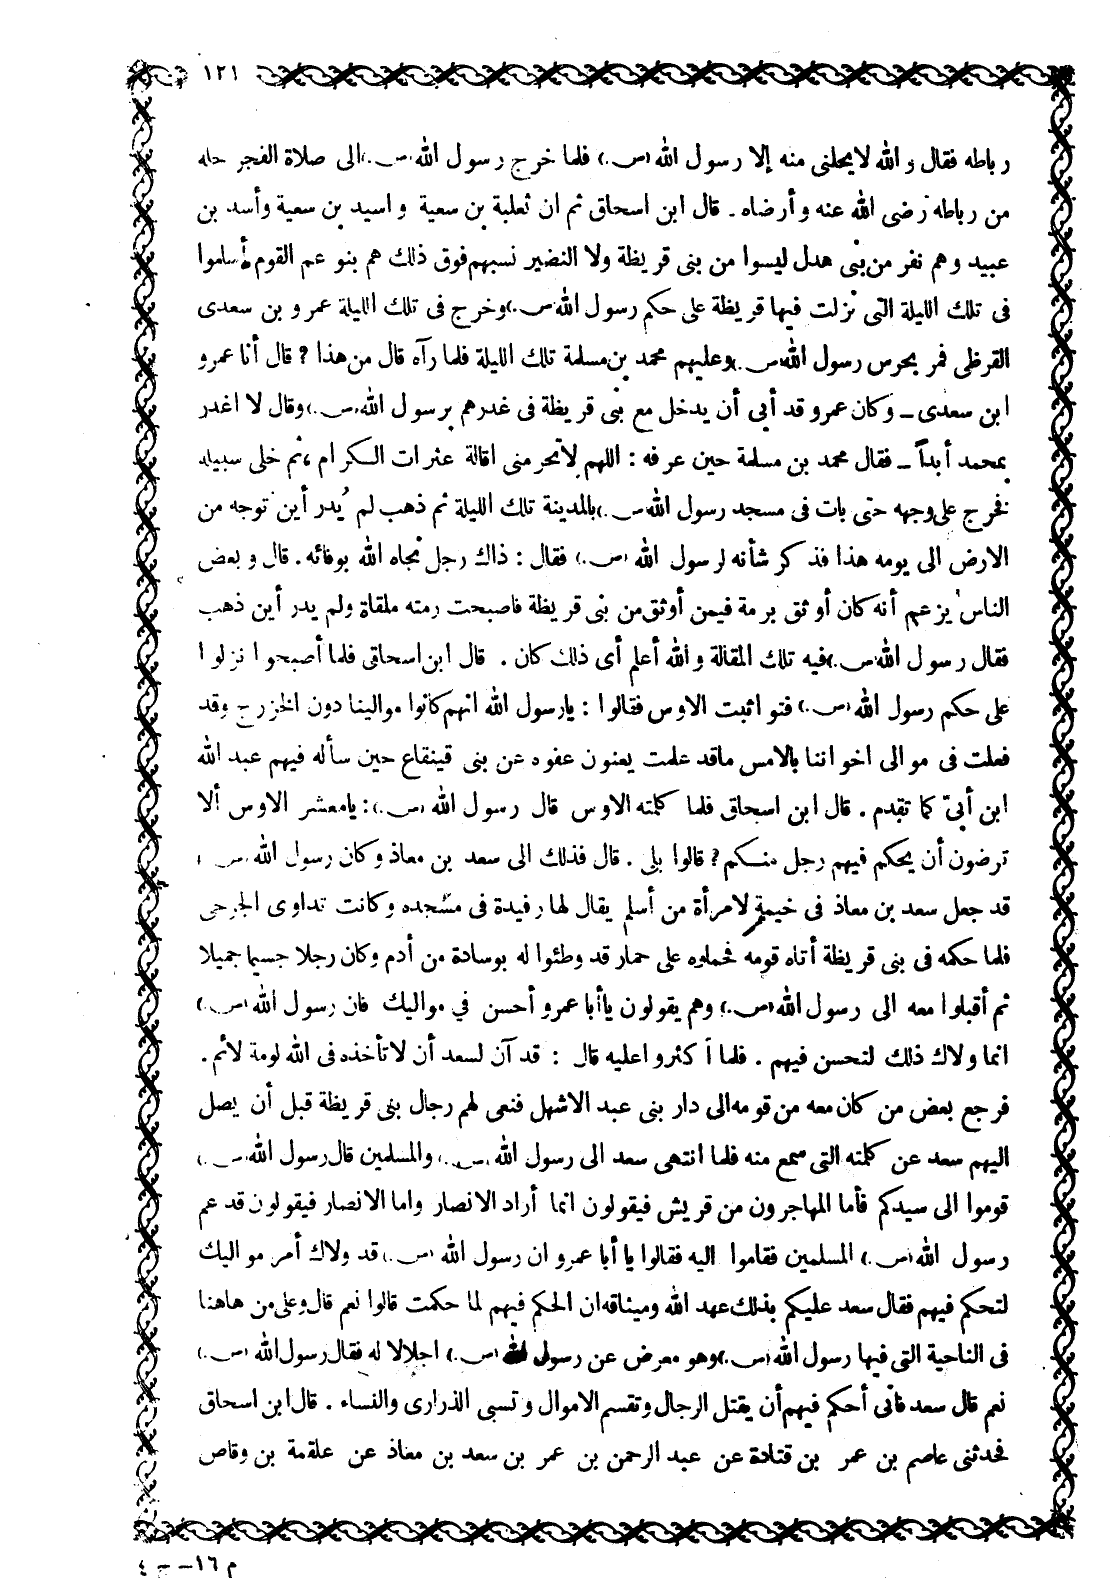 ١٢١
رباطه فقال والله لا يحلنى منه إلا رسول الله (ص.) فلما خرج رسول الله (ص.) الى صلاة الفجر حله
من رباطه رضى الله عنه وأرضاه . قال ابن اسحاق ثم ان ثعلبة بن سعية واسيد بن سعية وأسد بن
عبيد وهم نفر من بنى هدل ليسوا من بنى قريظة ولا النضير نسبهم فوق ذلك هم بنو عم القوم أسلموا
فى تلك الليلة التى نزلت فيها قريظة على حكم رسول الله (ص.) وخرج فى تلك الليلة عمرو بن سعدى
القرظى فمر بحرس رسول الله (ص.) وعليهم محمد بن مسلمة تلك الليلة فلما رآه قال من هذا ؟ قال أنا عمرو
ابن سعدى ــ وكان عمرو قد أبى أن يدخل مع بنى قريظة فى غدرهم برسول الله (ص.) وقال لا اغدر
بمحمد أبداً ــ فقال محمد بن مسلمة حين عرفه : اللهم لا تحرمنى اقالة عثرات الكرام ، ثم خلى سبيله
فخرج على وجهه حتى بات فى مسجد رسول الله (ص.) بالمدينة تلك الليلة ثم ذهب لم يُدر أين توجه من
الارض الى يومه هذا فذكر شأنه لرسول الله (ص.) فقال : ذاك رجل نجاه الله بوفائه . قال وبعض
الناس يزعم أنه كان أوثق برمة فيمن أوثق من بنى قريظة فاصبحت رمته ملقاة ولم يدر أين ذهب
فقال رسول الله (ص.) فيه تلك المقالة والله أعلم أى ذلك كان . قال ابن اسحاق فلما أصبحوا نزلوا
على حكم رسول الله (ص.) فتواثبت الاوس فقالوا : يا رسول الله انهم كانوا موالينا دون الخزرج وقد
فعلت فى موالى اخواننا بالامس ما قد علمت يعنون عفوه عن بنى قينقاع حين سأله فيهم عبد الله
ابن أبىّ كما تقدم . قال ابن اسحاق فلما كلمته الاوس قال رسول الله (ص.) : يا معشر الاوس ألا
ترضون أن يحكم فيهم رجل منكم ؟ قالوا بلى . قال فذلك الى سعد بن معاذ وكان رسول الله (ص.)
قد جعل سعد بن معاذ فى خيمة لامرأة من أسلم يقال لها رفيدة فى مسجده وكانت تداوى الجرحى
فلما حكمه فى بنى قريظة أتاه قومه فحملوه على حمار قد وطئوا له بوسادة من أدم وكان رجلا جسيما جميلا
ثم أقبلوا معه الى رسول الله (ص.) وهم يقولون يا أبا عمرو أحسن في مواليك فان رسول الله (ص.)
انما ولاك ذلك لتحسن فيهم . فلما أكثروا عليه قال : قد آن لسعد أن لا تأخذه فى الله لومة لائم .
فرجع بعض من كان معه من قومه الى دار بنى عبد الاشهل فنعى لهم رجال بنى قريظة قبل أن يصل
اليهم سعد عن كلمته التى سمع منه فلما انتهى سعد الى رسول الله (ص.) والمسلمين قال رسول الله (ص.)
قوموا الى سيدكم فأما المهاجرون من قريش فيقولون انما أراد الانصار واما الانصار فيقولون قد عم
رسول الله (ص.) المسلمين فقاموا اليه فقالوا يا أبا عمرو ان رسول الله (ص.) قد ولاك أمر مواليك
لتحكم فيهم فقال سعد عليكم بذلك عهد الله وميثاقه ان الحكم فيهم لما حكمت قالوا نعم قال وعلى من هاهنا
فى الناحية التى فيها رسول الله (ص.) وهو معرض عن رسول الله (ص.) اجلالا له فقال رسول الله (ص.)
نعم قال سعد فانى أحكم فيهم أن يقتل الرجال وتقسم الاموال وتسبى الذرارى والنساء . قال ابن اسحاق
فحدثنى عاصم بن عمر بن قتادة عن عبد الرحمن بن عمر بن سعد بن معاذ عن علقمة بن وقاص
م ١٦ــ ج ٤